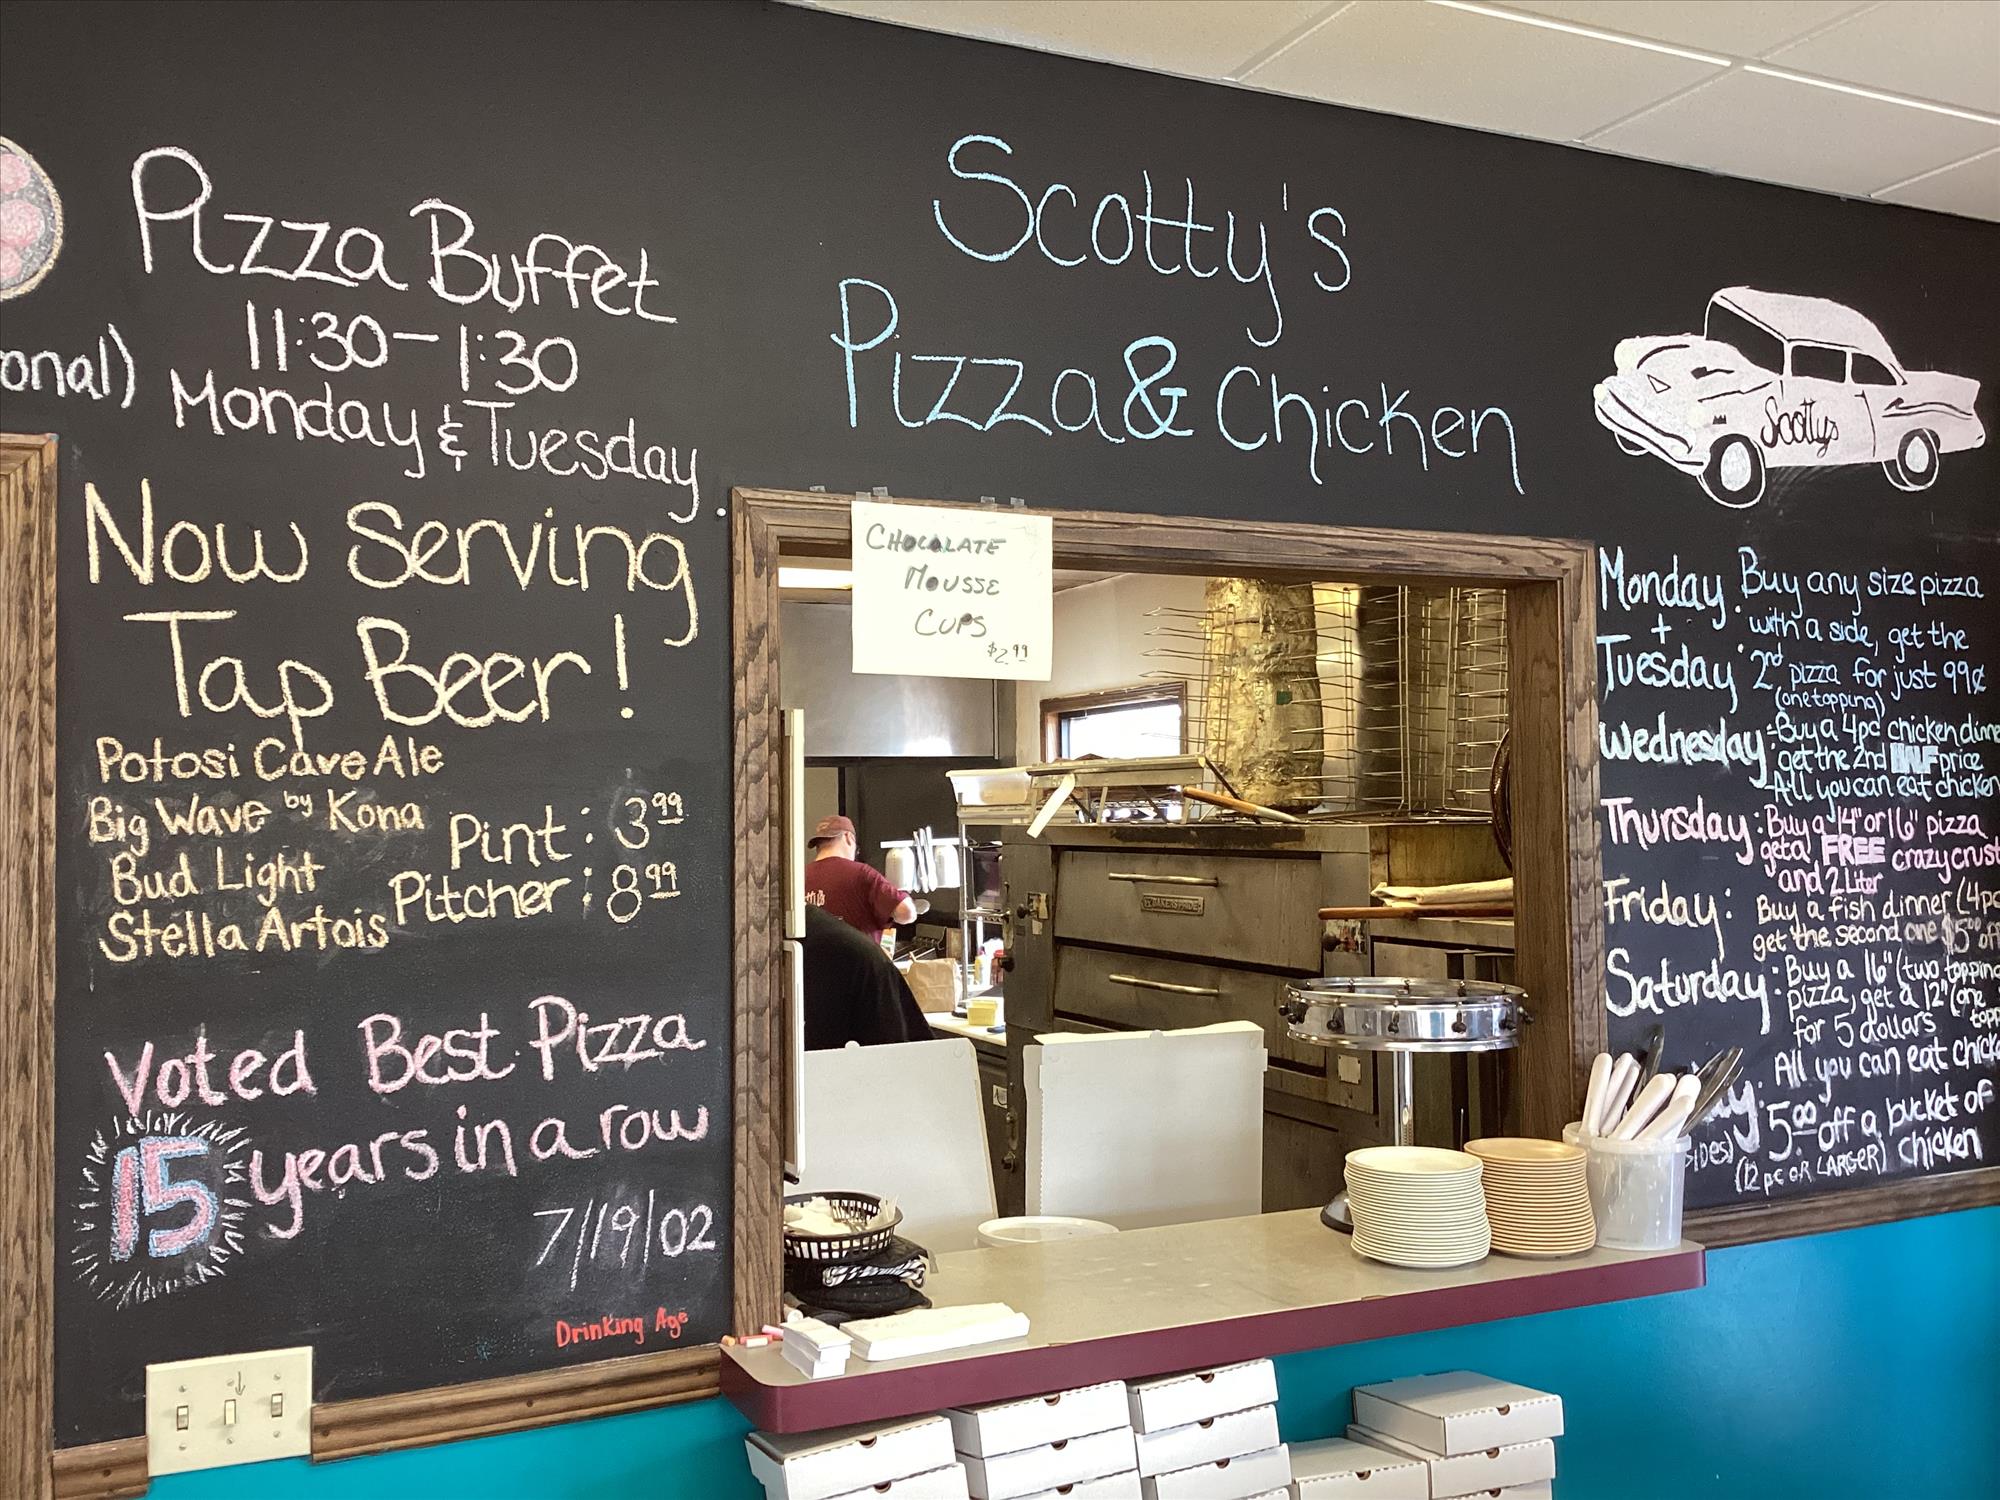 onal)
Pizza Buffet
11:30 - 1:30
Monday & Tuesday
Now Serving
Tap Beer!
Potosi Cave Ale
Big Wave by Kona
Bud Light
Stella Artois
Pint: 3.99
Pitcher: 8.99
Voted Best Pizza
15 years in a row
7/19/02
Drinking Age
Scotty's
Pizza & Chicken
CHOCOLATE
MOUSSE
CUPS
$2.99
BAKERS PRIDE
Scottys
Monday + Tuesday: Buy any size pizza
with a side, get the
2nd pizza for just 99¢
(one topping)
Wednesday: -Buy a 4pc chicken dinne
get the 2nd HALF price
-All you can eat chicken
Thursday: Buy a 14" or 16" pizza
get a FREE crazy crust
and 2 Liter
Friday: Buy a fish dinner (4pc
get the second one $5.00 off
Saturday: Buy a 16" (two topping
pizza, get a 12" (one
topp
for 5 dollars
All you can eat chick
ay: 5.00 off a bucket of
(12 pc OR LARGER) chicken